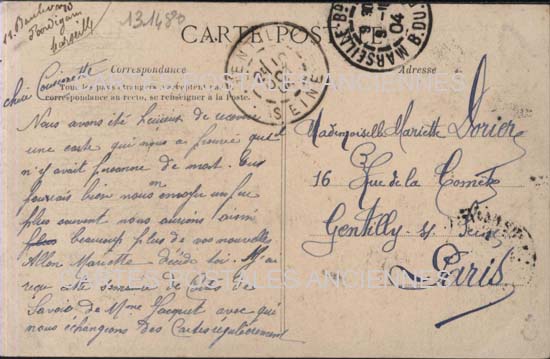 131480
11 Boulevard
Marseille
CARTE POSTALE
Chère Cousinette
Correspondance
Adresse
Tous les pays étrangers n'acceptent pas la
correspondance au recto, se renseigner à la Poste.
GENTILLY
SEINE
MARSEILLE
B. DU
04
Nous avons été heureux de recevoir
une carte qui nous a prouvé qu'il
n'y avait personne de mort. tu
pourrais bien nous envoyer un peu
plus souvent nous aurions ainsi
plus beaucoup plus de vos nouvelles
Allons Mariette décide toi. J'ai
reçu cette semaine de
Savoie de Mme Jacquet avec qui
nous échangeons des Cartes régulièrement
Mademoiselle Mariette Dorier
16 Rue de la Comète
Gentilly s/ Seine
Paris
CARTES POSTALES ANCIENNES
CARTES POSTALES ANCIENNES